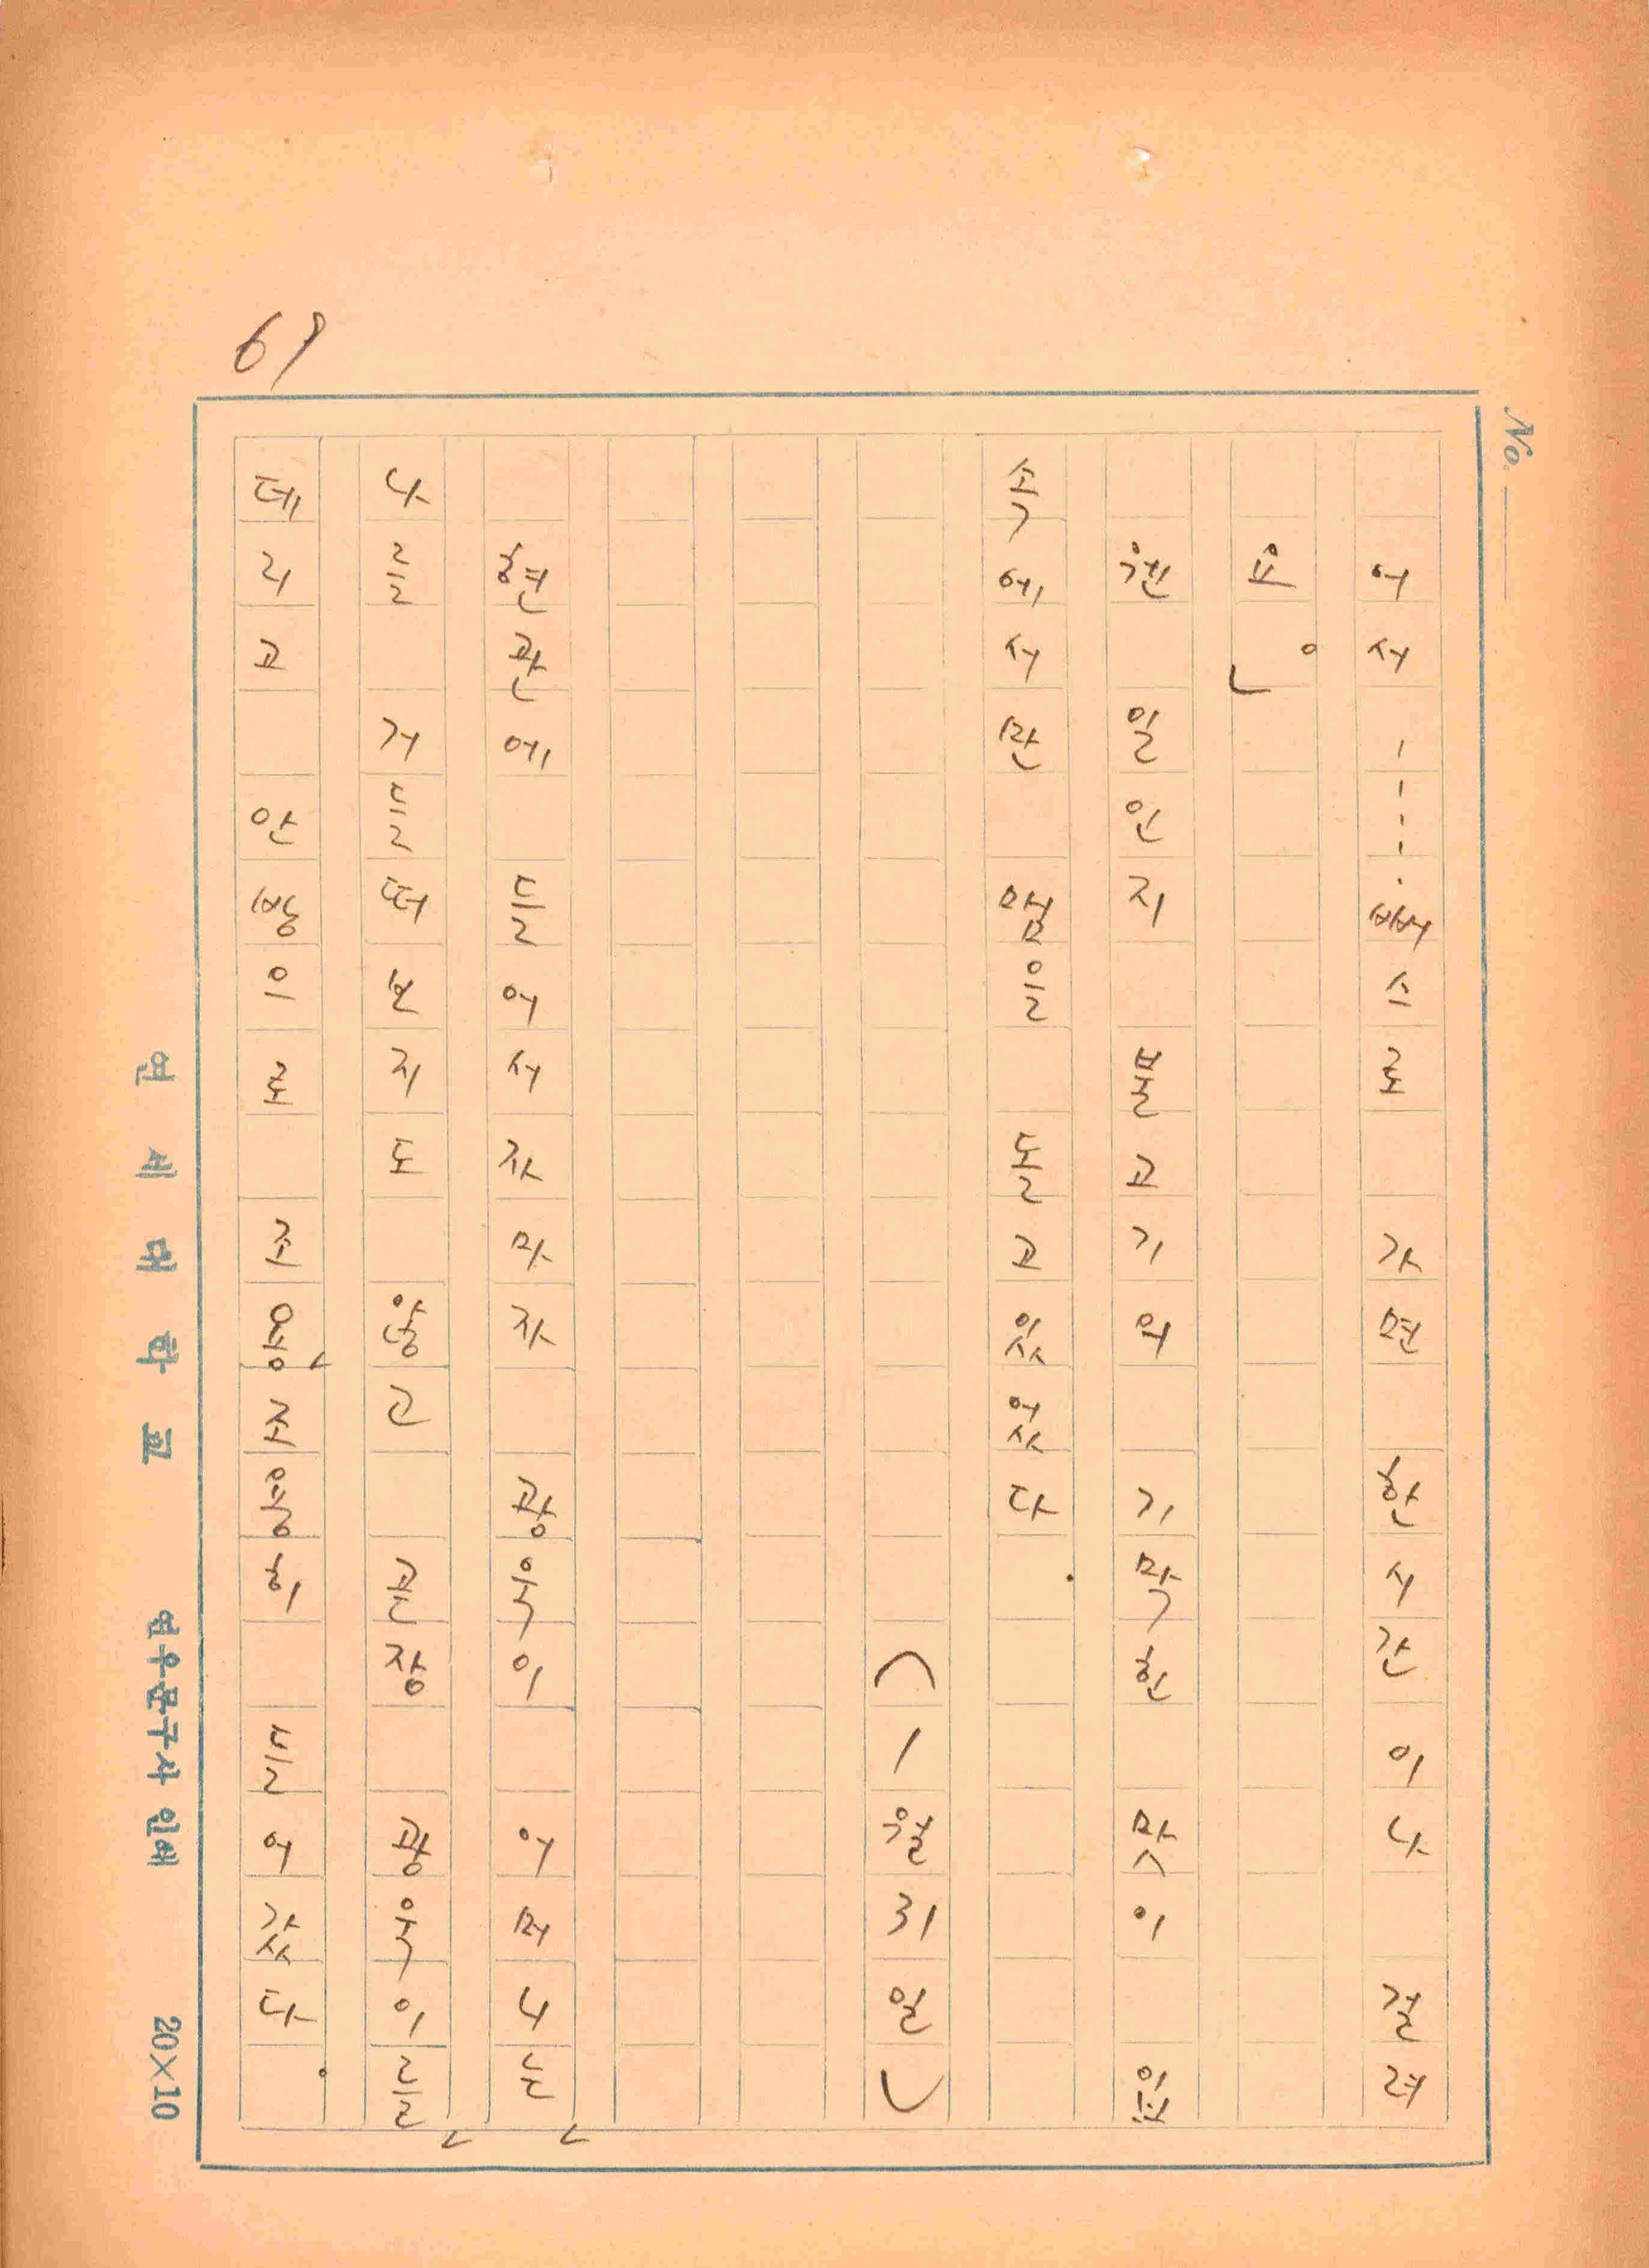 69
No.
어서----. 뻐스로 가면 한시간이나 걸려
요。」
웬 일인지 불고기의 기막힌 맛이 입
속에서만 맴을 돌고있었다.
(1월31일)
현관에 들어서자마자 광욱이 어머니는
나를 거들떠보지도 않고 곧장 광욱이를
데리고 안방으로 조용조용히 들어갔다。
연세대학교 연우문구사 인쇄 20×10